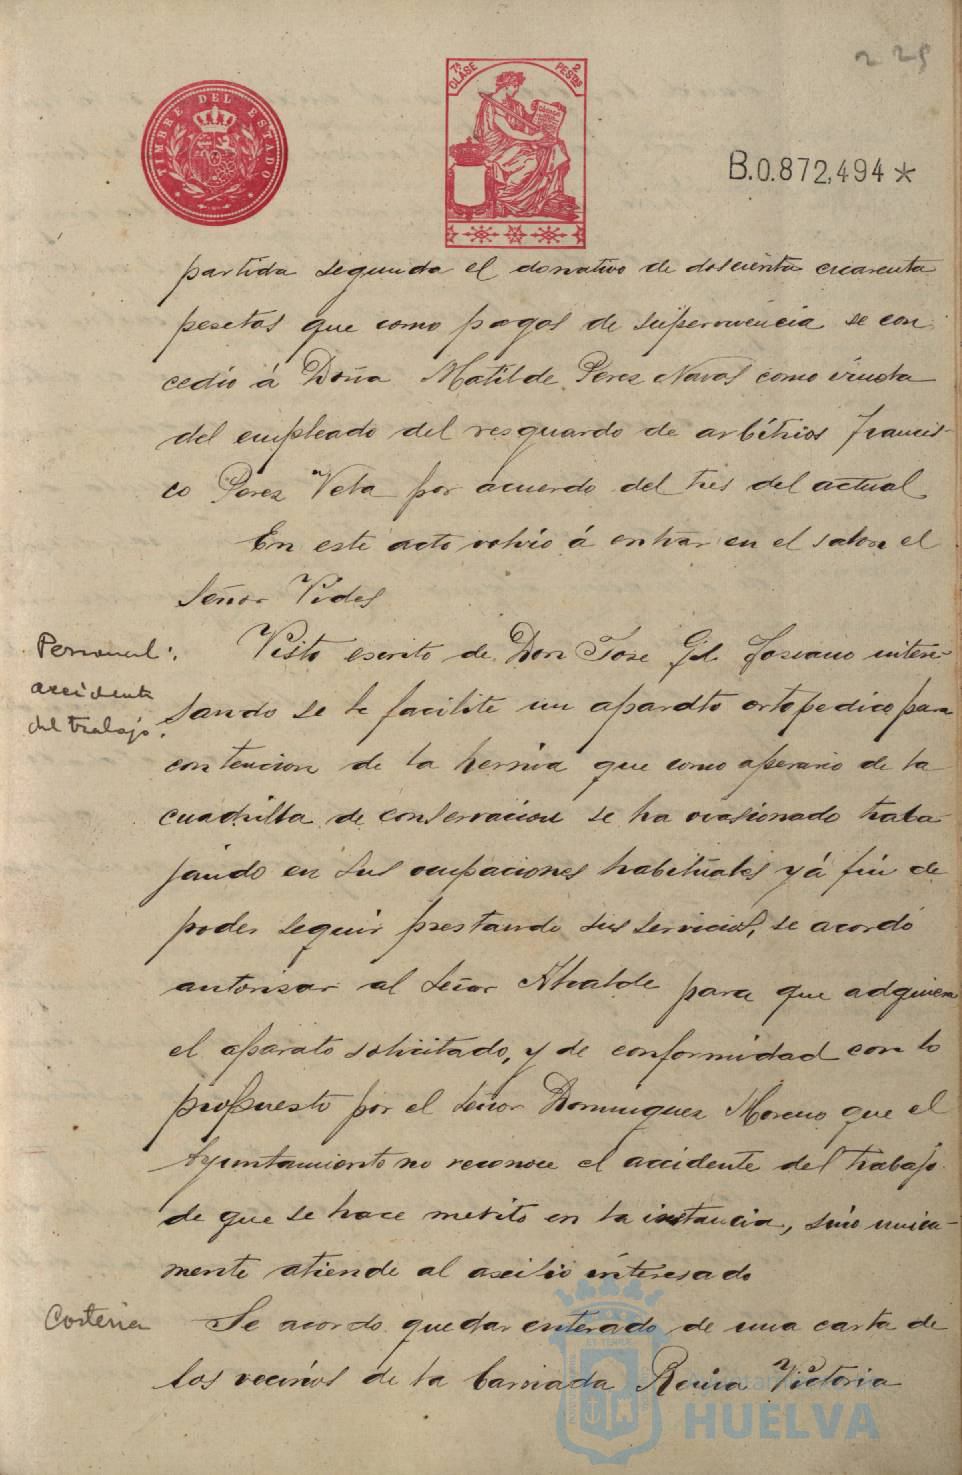 225
TIMBRE DEL ESTADO
7ª CLASE 2 PESTAS
B.0.872,494*
partida segunda el donativo de doscienta cuarenta
pesetas que como pagas de supervivencia se con
cedió á Doña Matilde Perez Navas como viuda
del empleado del resguardo de arbitrios Francis-
co Perez Vela por acuerdo del tres del actual
En este acto volvio á entrar en el salon el
Señor Vides
Personal:
accidente
del trabajo.
Visto escrito de Don Jose Gil intere-
sando se le facilite un aparato ortopedico para
contencion de la hernia que como operario de la
cuadrilla de conservacion se ha ocasionado traba
jando en sus ocupaciones habituales y á fin de
poder seguir prestando sus servicios, se acordó
autorizar al Señor Alcalde para que adquiera
el aparato solicitado, y de conformidad con lo
propuesto por el Señor Dominguez Moreno que el
Ayuntamiento no reconoce el accidente del trabajo
de que se hace merito en la instancia, sino unica-
mente atiende al auxilio interesado
Corteria
Se acordo quedar enterado de una carta de
los vecinos de la barriada Reina Victoria
Ayuntamiento de
HUELVA